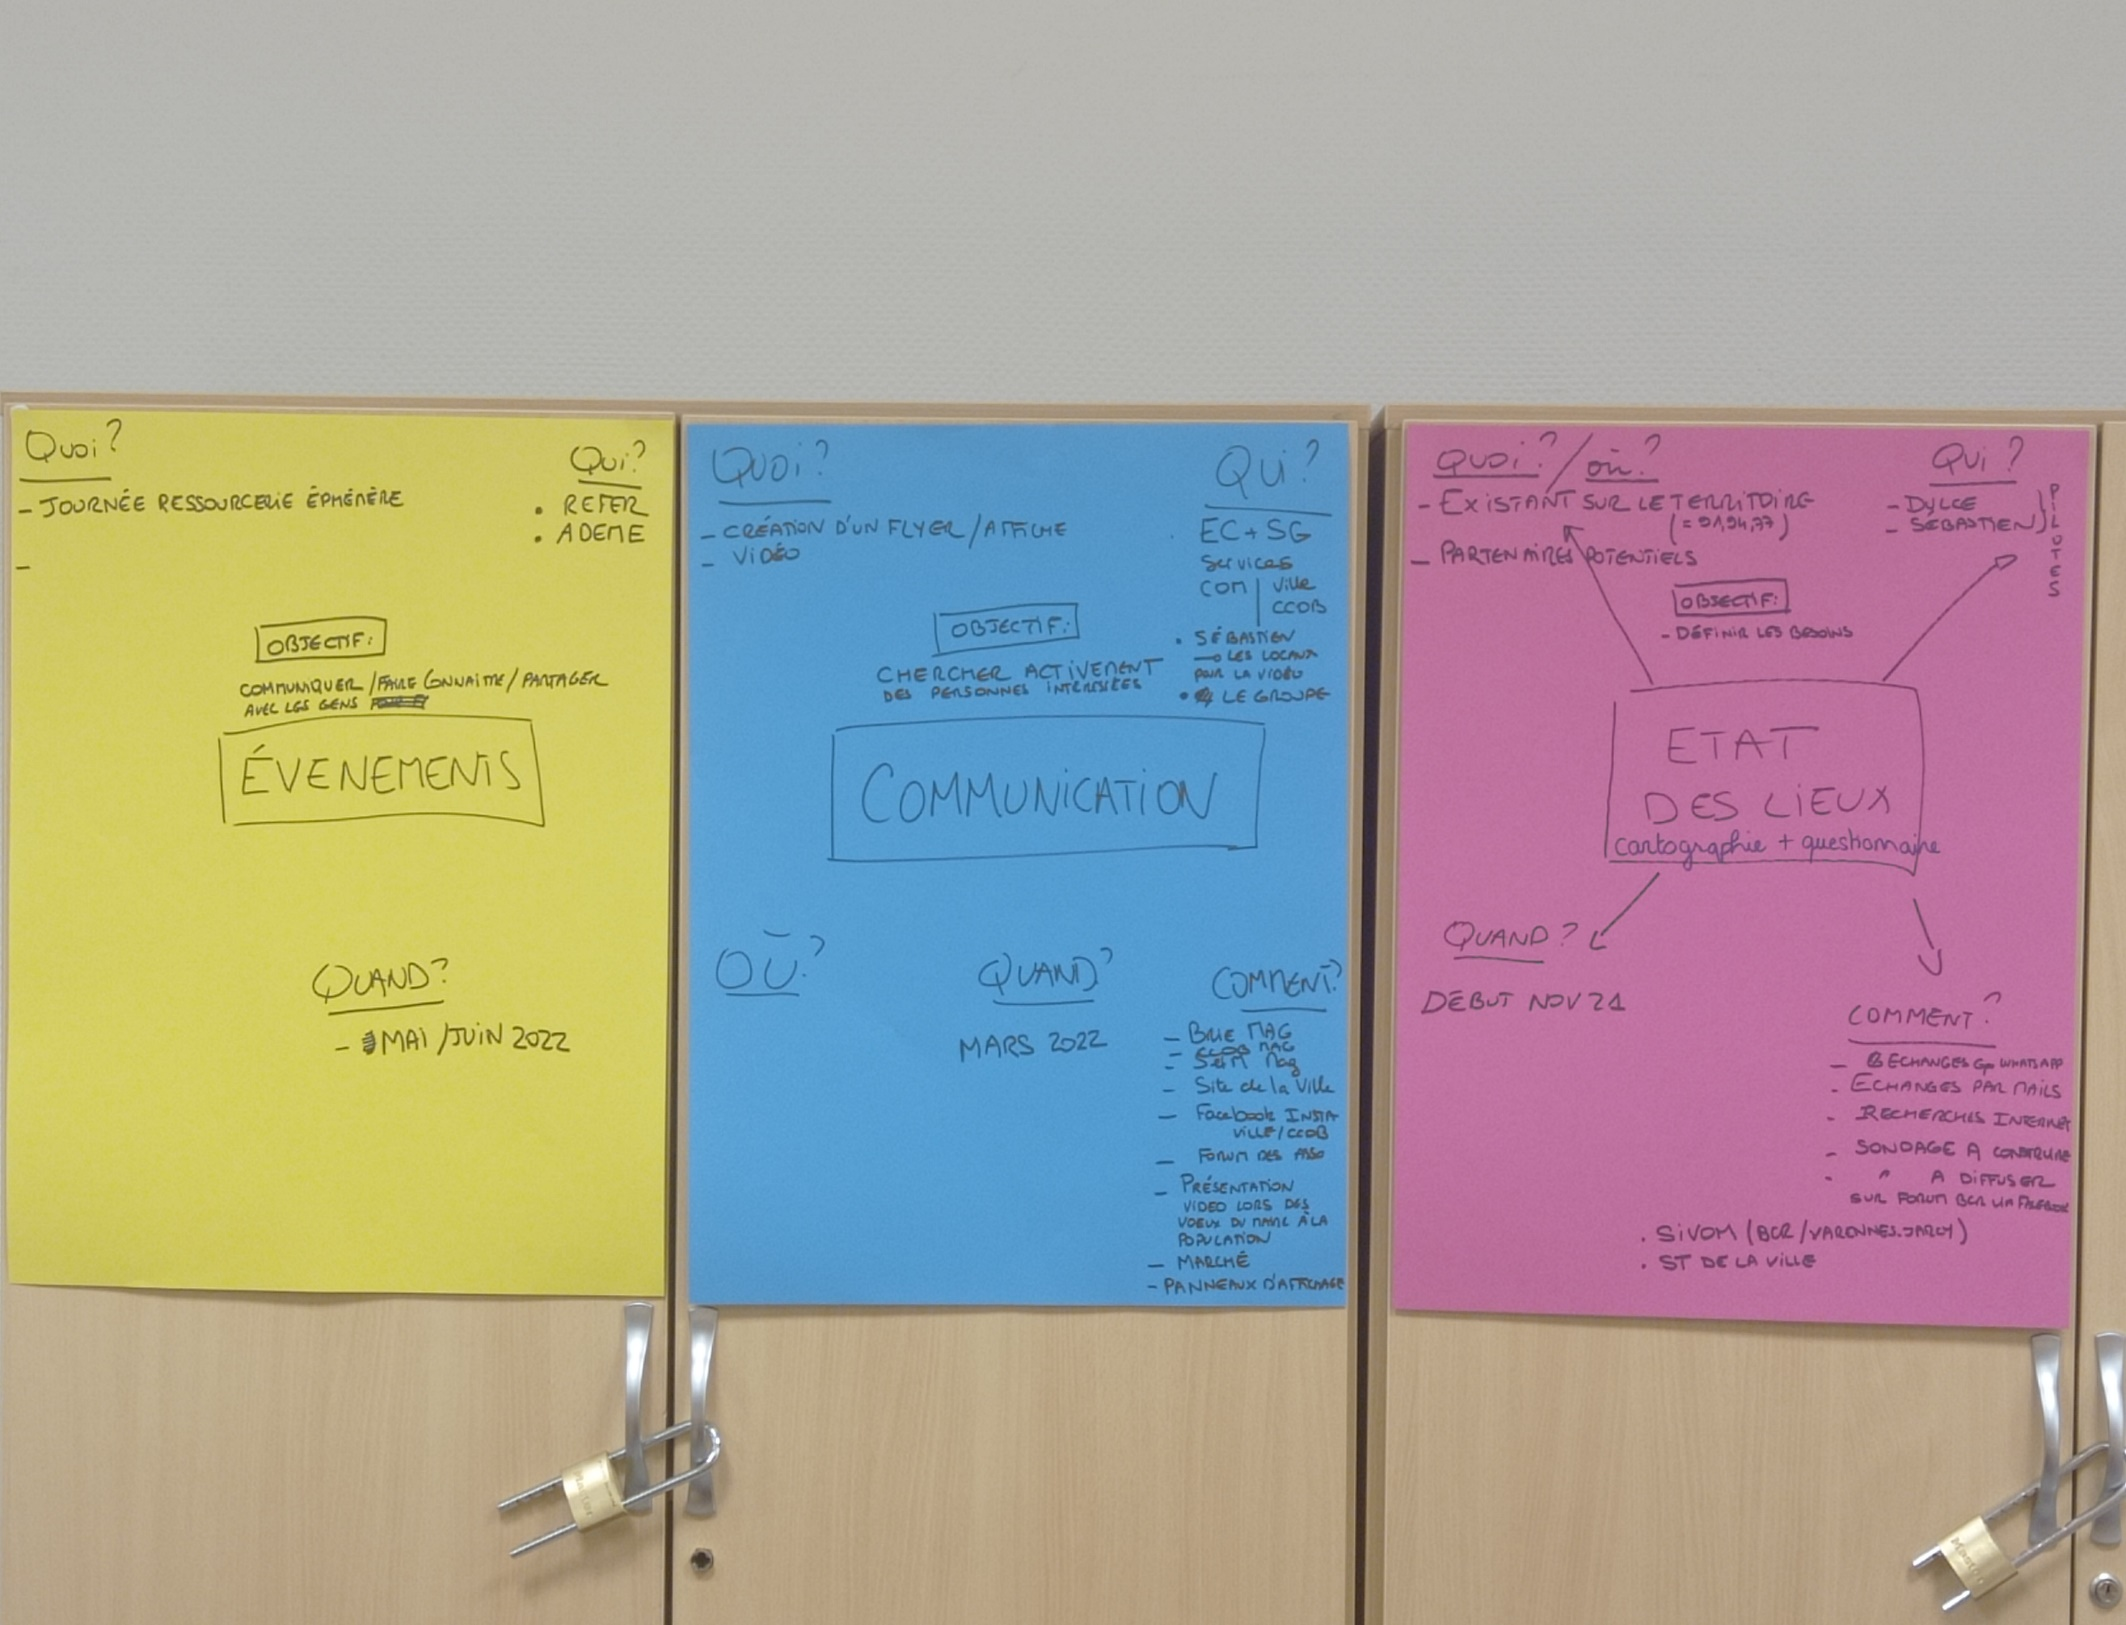 Quoi?
- JOURNÉE RESSOURCERIE ÉPHÉMÈRE
-
Qui?
• REFER
• ADEME
OBJECTIF:
COMMUNIQUER/FAIRE CONNAITRE/PARTAGER
AVEC LES GENS
ÉVENEMENTS
QUAND?
- MAI/JUIN 2022
QUOI?
- CRÉATION D'UN FLYER/AFFICHE
- VIDÉO
QUI?
EC+SG
Services
COM | Ville
CCOB
• SÉBASTIEN
→ LES LOCAUX
POUR LA VIDÉO
• LE GROUPE
OBJECTIF:
CHERCHER ACTIVEMENT
DES PERSONNES INTERESSÉES
COMMUNICATION
OÙ?
QUAND?
MARS 2022
COMMENT?
- BRIE MAG
- CCOB MAG
- Mag
- Site de la Ville
- Facebook INSTA
VILLE/CCOB
- FORUM DES ASSO
- PRÉSENTATION
VIDEO LORS DES
VOEUX DU MAIRE À LA
POPULATION
- MARCHÉ
- PANNEAUX D'AFFICHAGE
QUOI?/où?
- EXISTANT SUR LE TERRITOIRE
(=91,94,77)
- PARTENAIRES POTENTIELS
QUI?
- DYLCE
- SÉBASTIEN
PILOTES
OBJECTIF:
- DÉFINIR LES BESOINS
ETAT
DES LIEUX
cartographie + questionnaire
QUAND?
DÉBUT NOV 21
COMMENT?
- ECHANGES Gp WHATSAPP
- ECHANGES PAR MAILS
- RECHERCHES INTERNET
- SONDAGE A CONSTRUIRE
- " A DIFFUSER
SUR FORUM BCR VIA FACEBOOK
• SIVOM (BCR/VARENNES-JARCY)
• ST DE LA VILLE
Master
Master